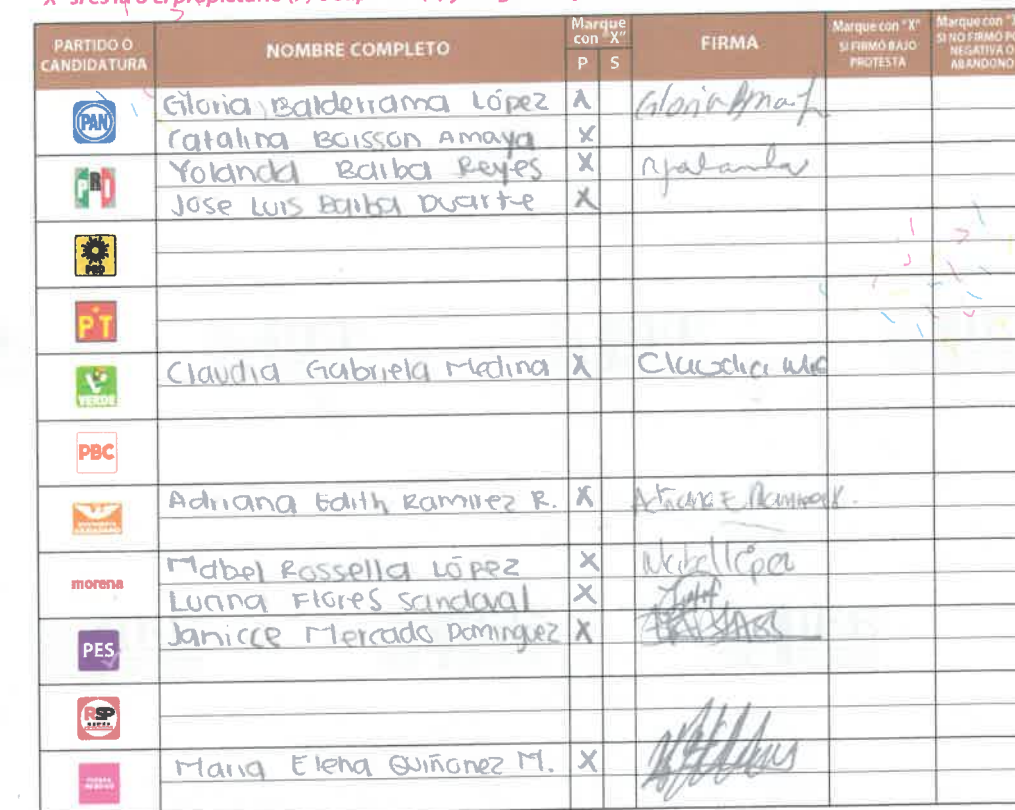 PARTIDO O CANDIDATURA NOMBRE COMPLETO Marque con "X" P S FIRMA Marque con "X" SI FIRMÓ BAJO PROTESTA Marque con "X" SI NO FIRMÓ PO NEGATIVA O ABANDONO
PAN Gloria Balderrama López X Gloria Ama
Catalina Boisson Amaya X
PRI Yolanda Barba Reyes X Yolanda
Jose Luis Barba Duarte X
PRD
PT
VERDE Claudia Gabriela Medina X Claudia
PBC
Adriana Edith Ramirez R. X Adriana E. Ramirez R.
morena Mabel Rossella López X Mabel López
Luana Flores Sandoval X
PES Janicce Mercado Dominguez X
RSP
Maria Elena Quiñonez M. X